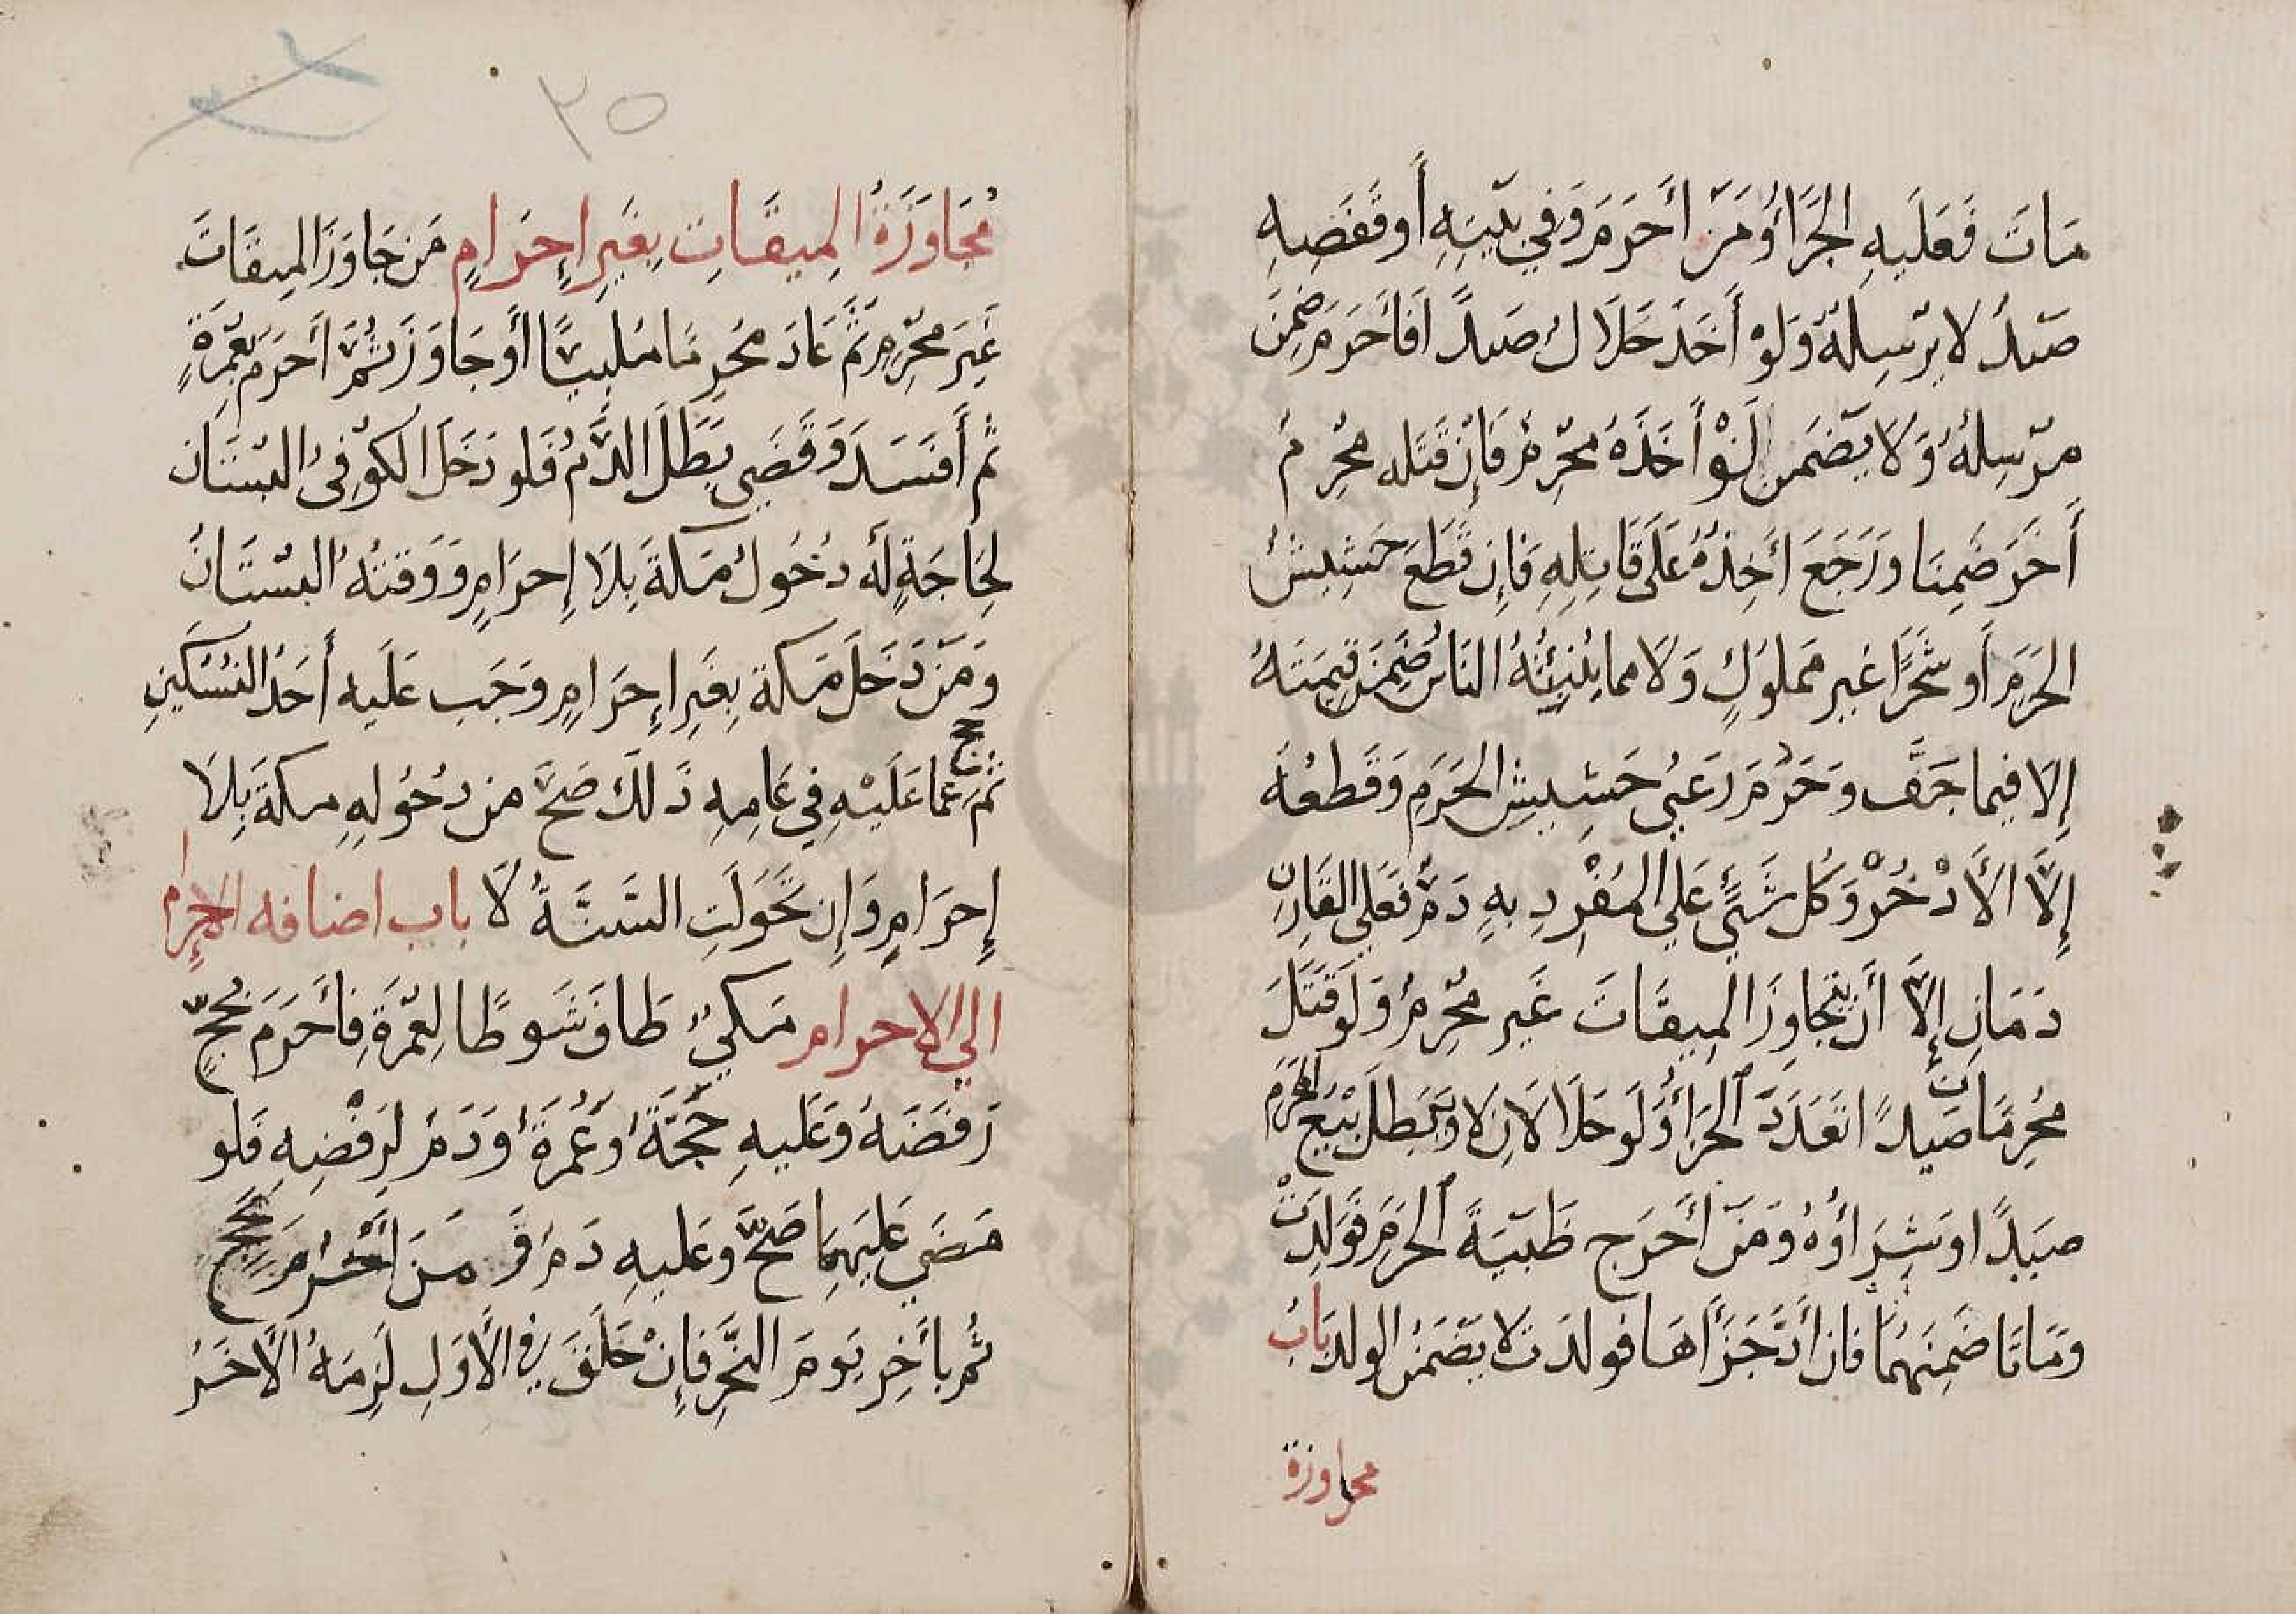 مَاتَ فَعَلَيهِ الجَزَاؤُ وَمَن أَحرَمَ وَفِي بَيتِهِ أَو قَفَصِهِ
صَيدٌ لا يُرسِلهُ وَلَوْ أَخَذَ حَلَالٌ صَيدًا فَأَحرَمَ ضَمِنَ
مُرسِلهُ وَلَا يَضمَن لَوْ أَخَذَهُ مُحرِمٌ فَإِن قَتَله مُحرِمٌ
أَخَر ضَمِنَا وَرَجَعَ أَخِذُهُ عَلَى قَاتِلِهِ فَإِن قَطَعَ حَشِيشَ
الحَرَمِ أَو شَجَرًا غَير مَملُوكٍ وَلَا مما يُنبِتُهُ النَاسُ ضَمِنَ قِيمَتَهُ
إِلا فِيما جَفَّ وَحَرُمَ رَعيُ حَشِيشِ الحَرَمِ وَقَطعُهُ
إِلَّا الأَذْخُرْ وَكُل شَيٍْ عَلَي المُفْرِدِ بِهِ دَمٌ فَعَلَي القَارِنِ
دَمَانِ إِلَّا أَن يُجَاوِزَ المِيقَاتَ غَير مُحرِمٍ وَلَو قَتَلَ
مُحرِمَانِ صَيدًا تَعَدَدَ الجَزَاؤُ وَلَو حَلَالَانِ لَا وَيَبطلُ بَيْعُ المُحرِمِ
صَيدًا او شِرَاؤُهُ وَمَن أَخرَج ظَبيَةَ الحَرَمِ فَوَلَدَتْ
وَمَاتَا ضَمِنَهُمَا فان أَدَّى جَزَاهَا فولدَت لَا يَضمَنُ الولد بَابُ
مجاوزة
٣٥
مُجَاوَزَةُ المِيقَاتِ بِغَيرِ إِحرَامٍ مَن جَاوَزَ المِيقَاتَ
غَيرَ مُحرِمٍ ثُمَّ عَادَ مُحرِمًا مُلَبِيًا أَو جَاوَزَ ثُمَّ أَحرَمَ بِعُمرَةٍ
ثُم أَفسَدَ وَقَضَي بَطَلَ الدَّمُ فَلَو دَخَلَ الكُوفِىُ البُستَان
لِحَاجَةٍ لَهُ دُخُولُ مَكةَ بِلَا إِحرَامٍ وَوَقتُهُ البُستَانُ
وَمَن دَخَلَ مَكة بِغَيرِ إِحرَامٍ وَجَب عَلَيه أَحَدُ النُسُكَينِ
ثُم حج عَما عَلَيْهِ فِي عَامِهِ ذَلكَ صَحَّ مِن دُخُولِهِ مكةَ بِلَا
إِحرَامٍ وَإِن تَحَوَلَتِ السَّنَةُ لَا باب اضافه الاحرام
الي الاحرام مَكيٌ طَافَ شَوطًا لِعُمرَةٍ فَأَحرَمَ بِحَجٍّ
رَفَضَهُ وَعَلَيهِ حَجَّةٌ وَعُمرَةٌ وَدَمٌ لِرَفْضِهِ فَلَو
مَضَي عَلَيهِمَا صَحَّ وَعَلَيهِ دَمٌ وَ مَن أَحْرَمَ بِحَجٍّ
ثُم بِأَخِر يَومَ النَّحرِ فَإِنْ حَلَقَ فِي الأَولِ لَزِمَهُ الأَخَرُ